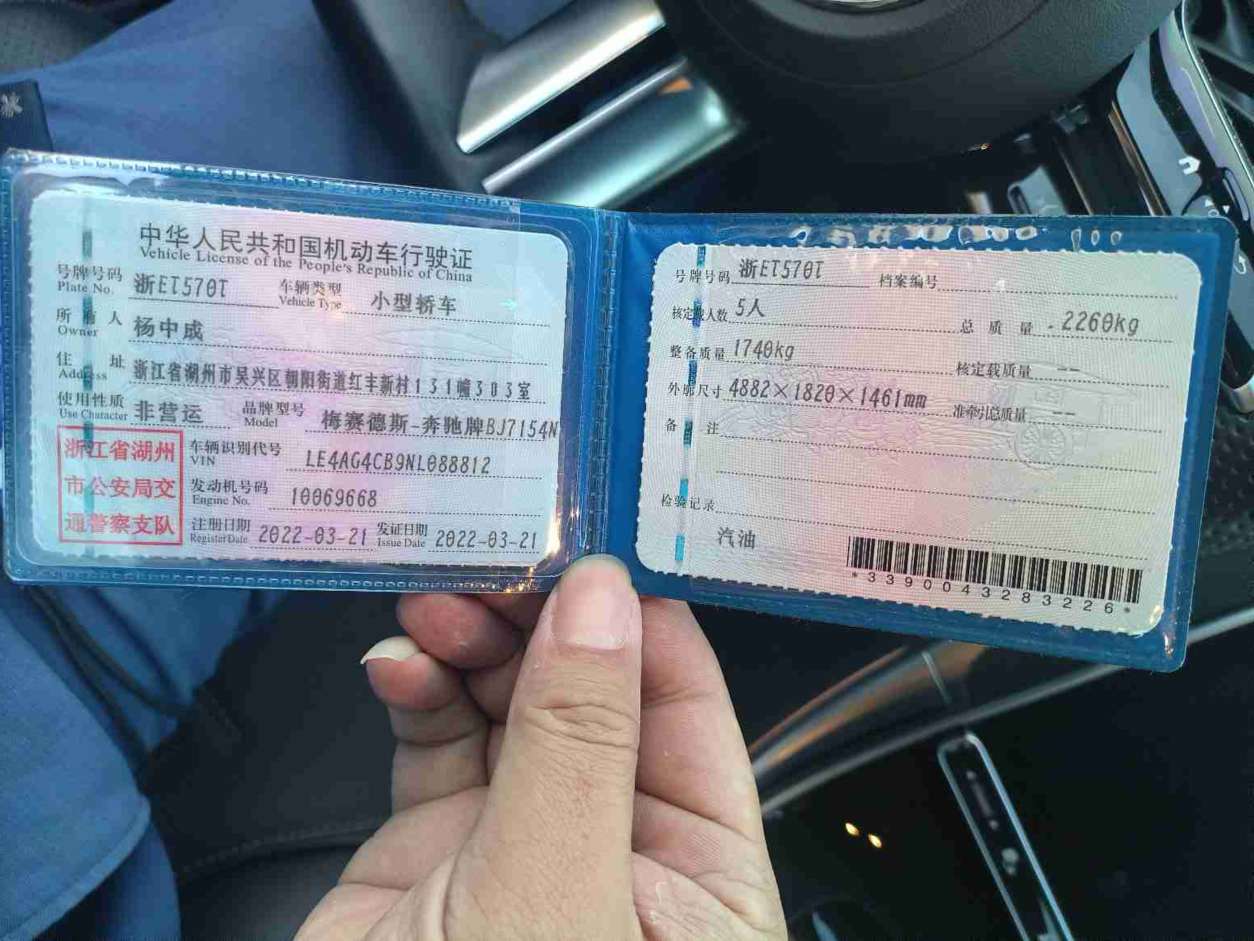 中华人民共和国机动车行驶证
Vehicle License of the People's Republic of China
号牌号码 浙ET570T 车辆类型 小型轿车
Plate No. Vehicle Type
所有人 杨中成
Owner
住址 浙江省湖州市吴兴区朝阳街道红丰新村131幢303室
Address
使用性质 非营运 品牌型号 梅赛德斯-奔驰牌BJ7154N
Use Character Model
浙江省湖州
市公安局交
通警察支队
车辆识别代号 LE4AG4CB9NL088812
VIN
发动机号码 10069668
Engine No.
注册日期 2022-03-21 发证日期 2022-03-21
Register Date Issue Date
号牌号码 浙ET570T 档案编号
核定载人数 5人 总质量 2260kg
整备质量 1740kg 核定载质量 --
外廓尺寸 4882×1820×1461mm 准牵引总质量 --
备注
检验记录
汽油
*3390043283226*